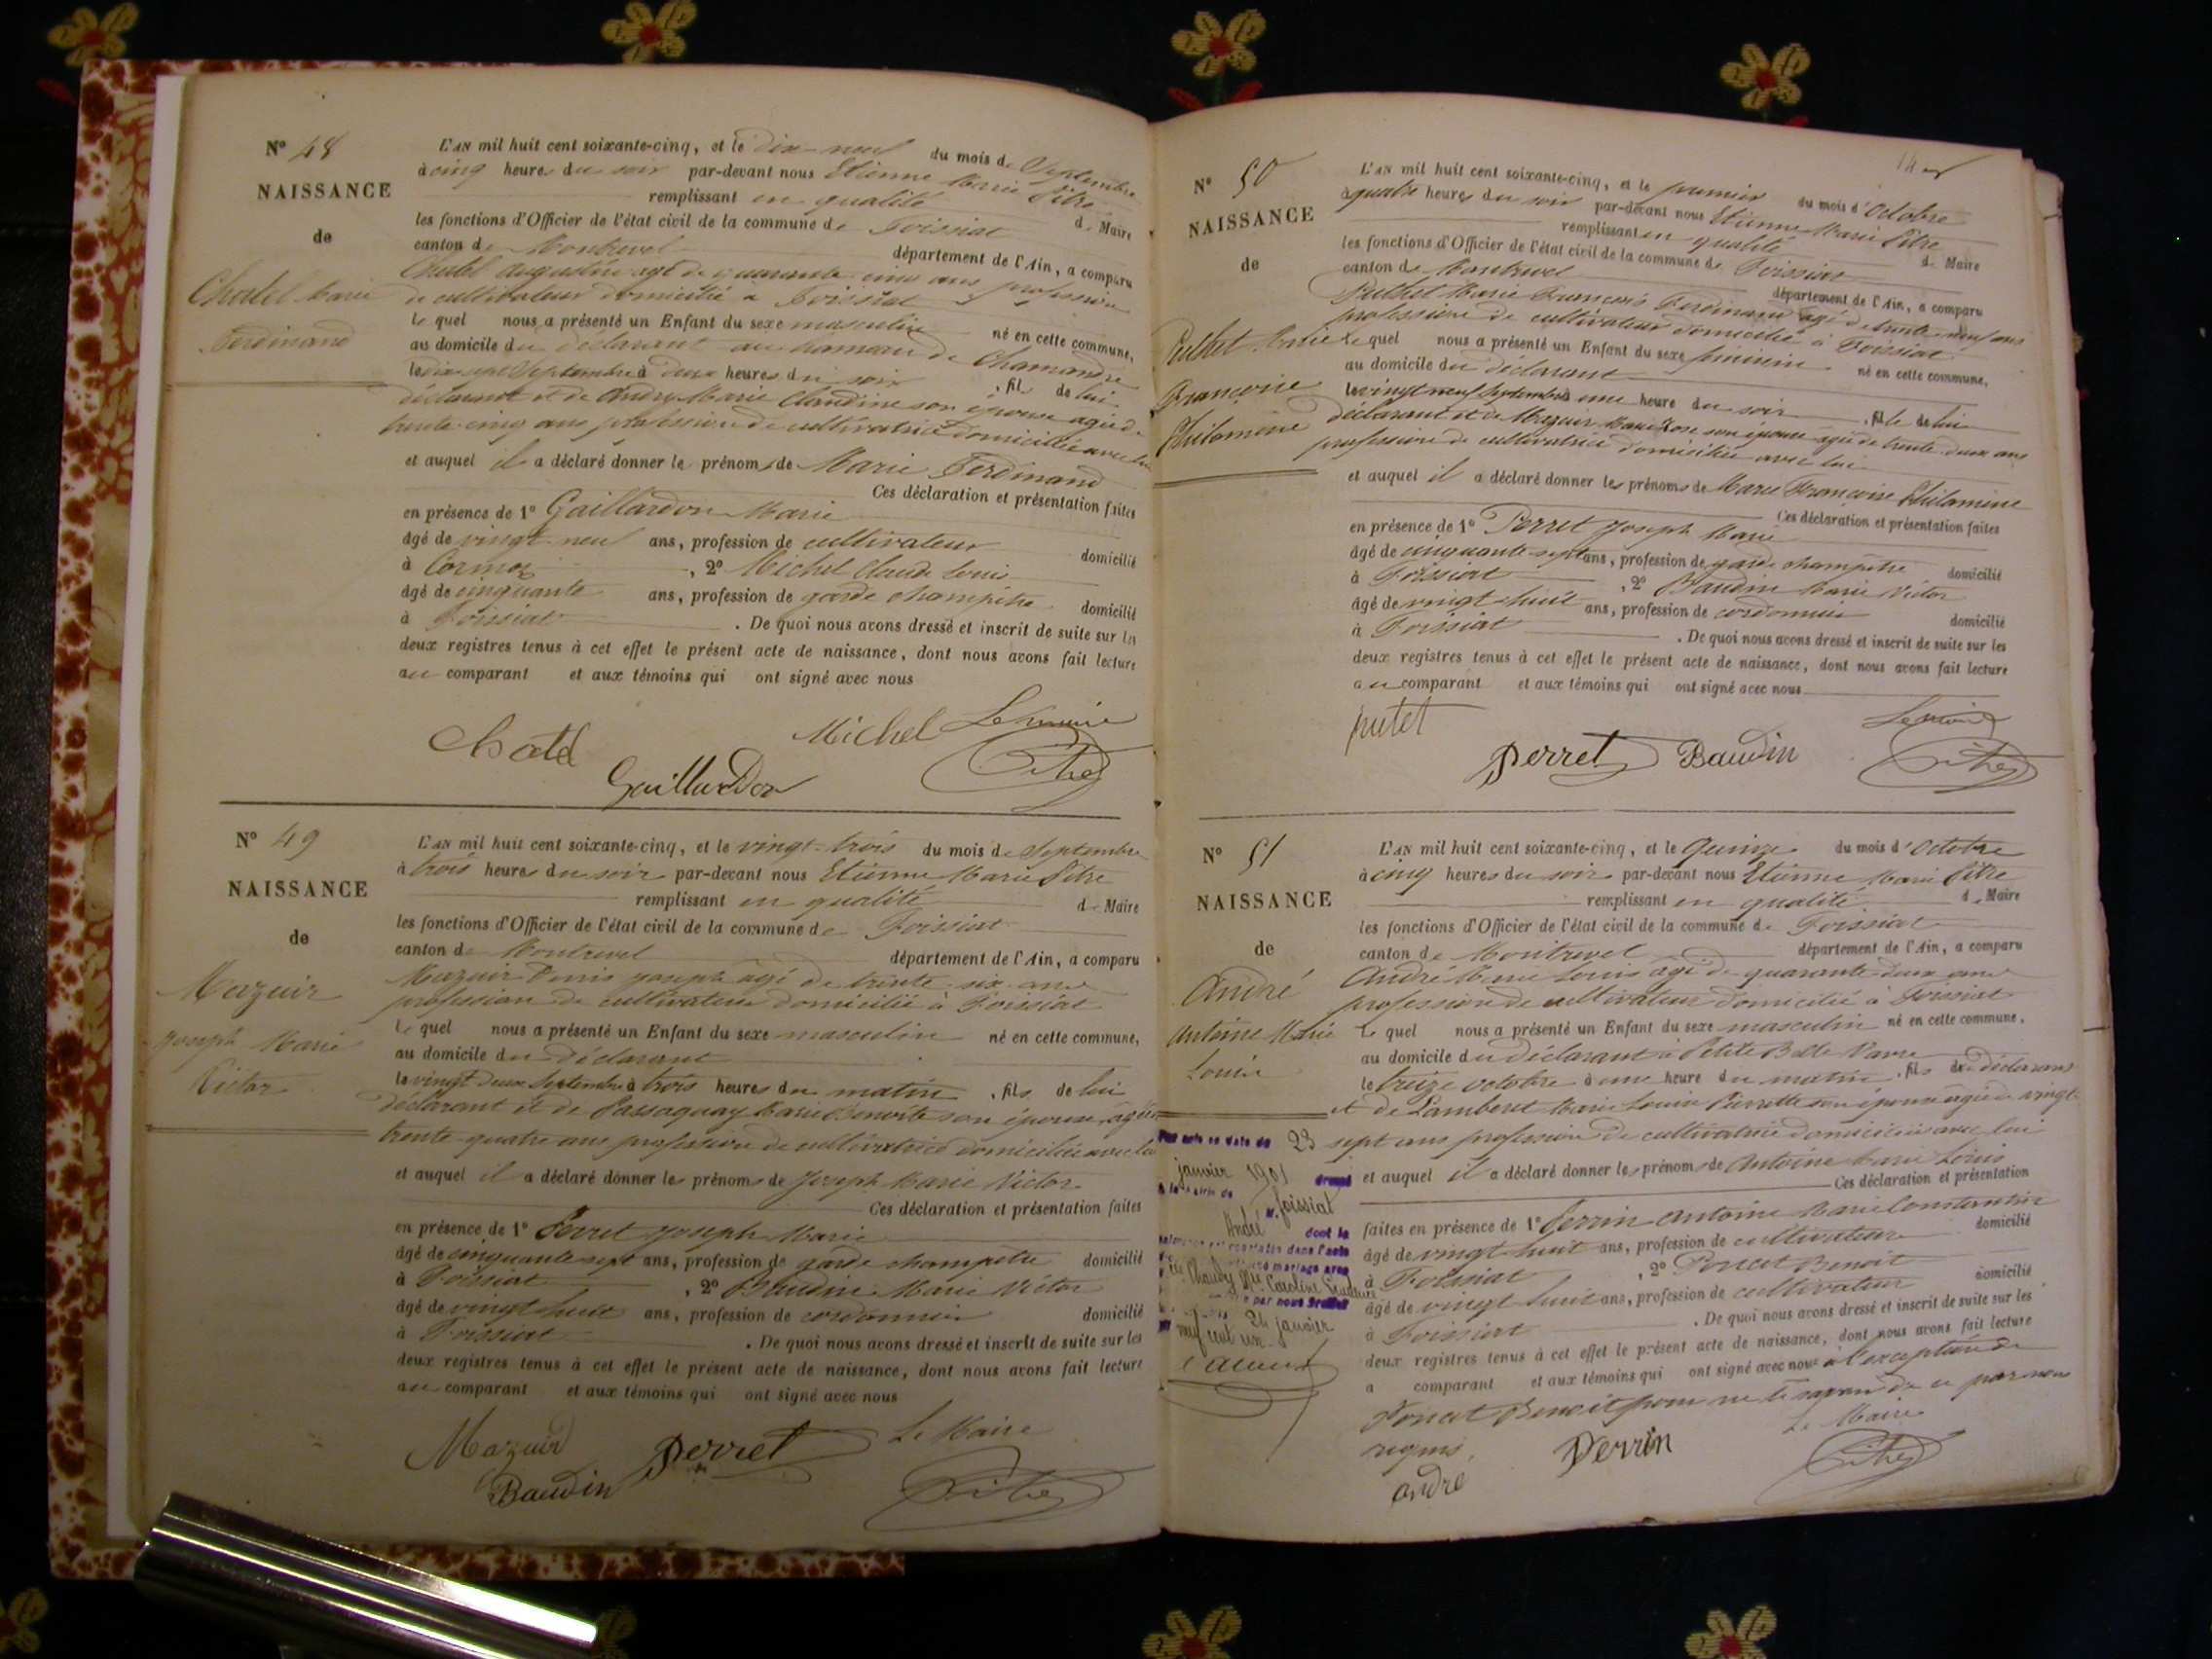 N° 48
NAISSANCE
de
Chatel Marie
Ferdinand
L'AN mil huit cent soixante-cinq, et le dix-neuf du mois de Septembre
à cinq heures du soir par-devant nous Etienne Marie Pitre
remplissant en qualité de Maire
les fonctions d'Officier de l'état civil de la commune de Foissiat
canton de Montrevel département de l'Ain, a comparu
Chatel Augustin agé de quarante cinq ans profession
de cultivateur domicilié à Foissiat
Le quel nous a présenté un Enfant du sexe masculin né en cette commune,
au domicile du déclarant au hameau de Chamandre
le dix sept Septembre à deux heures du soir, fils de lui
déclarant et de Andry Marie Claudine son épouse agée de
trente cinq ans profession de cultivatrice domiciliée avec lui
et auquel il a déclaré donner les prénoms de Marie Ferdinand
Ces déclaration et présentation faites
en présence de 1° Gaillardon Marie
âgé de vingt-neuf ans, profession de cultivateur domicilié
à Cormoz, 2° Michel Claude Louis
âgé de cinquante ans, profession de garde champêtre domicilié
à Foissiat. De quoi nous avons dressé et inscrit de suite sur les
deux registres tenus à cet effet le présent acte de naissance, dont nous avons fait lecture
au comparant et aux témoins qui ont signé avec nous
Chatel Michel Le maire
Gaillardon Pitre
N° 49
NAISSANCE
de
Mazuir
Joseph Marie
Victor
L'AN mil huit cent soixante-cinq, et le vingt-trois du mois de Septembre
à trois heures du soir par-devant nous Etienne Marie Pitre
remplissant en qualité de Maire
les fonctions d'Officier de l'état civil de la commune de Foissiat
canton de Montrevel département de l'Ain, a comparu
Mazuir Denis Joseph âgé de trente six ans
profession de cultivateur domicilié à Foissiat
Le quel nous a présenté un Enfant du sexe masculin né en cette commune,
au domicile du déclarant
le vingt deux Septembre à trois heures du matin, fils de lui
déclarant et de Passaquay Marie Benoite son épouse agée
trente-quatre ans profession de cultivatrice domiciliée avec lui
et auquel il a déclaré donner les prénoms de Joseph Marie Victor
Ces déclaration et présentation faites
en présence de 1° Perret Joseph Marie
âgé de cinquante sept ans, profession de garde champetre domicilié
à Foissiat, 2° Baudin Marie Victor
âgé de vingt huit ans, profession de cordonnier domicilié
à Foissiat. De quoi nous avons dressé et inscrit de suite sur les
deux registres tenus à cet effet le présent acte de naissance, dont nous avons fait lecture
au comparant et aux témoins qui ont signé avec nous
Mazuir Perret Le Maire
Baudin Pitre
N° 50
NAISSANCE
de
Puthet Marie
Françoise
Philomine
L'AN mil huit cent soixante-cinq, et le premier du mois d'Octobre
à quatre heures du soir par-devant nous Etienne Marie Pitre
remplissant en qualité de Maire
les fonctions d'Officier de l'état civil de la commune de Foissiat
canton de Montrevel département de l'Ain, a comparu
Puthet Marie François Ferdinand agé de trente-neuf ans
profession de cultivateur domicilié à Foissiat
Le quel nous a présenté un Enfant du sexe feminin né en cette commune,
au domicile du déclarant
le vingt neuf Septembre à une heure du soir, fille de lui
déclarant et de Mazuir Marie Rose son épouse agée de trente-deux ans
profession de cultivatrice domiciliée avec lui
et auquel il a déclaré donner les prénoms de Marie Françoise Philomine
Ces déclaration et présentation faites
en présence de 1° Perret Joseph Marie
âgé de cinquante-sept ans, profession de garde champêtre domicilié
à Foissiat, 2° Baudin Marie Victor
âgé de vingt-huit ans, profession de cordonnier domicilié
à Foissiat. De quoi nous avons dressé et inscrit de suite sur les
deux registres tenus à cet effet le présent acte de naissance, dont nous avons fait lecture
au comparant et aux témoins qui ont signé avec nous
putet Le maire
Perret Baudin Pitre
N° 51
NAISSANCE
de
André
Antoine Marie
Louis
23
janvier 1901
Foissiat
André dont la
mariage avec
Caroline
par nous
24 janvier
neuf cent un
L'AN mil huit cent soixante-cinq, et le Quinze du mois d'Octobre
à cinq heures du soir par-devant nous Etienne Marie Pitre
remplissant en qualité de Maire
les fonctions d'Officier de l'état civil de la commune de Foissiat
canton de Montrevel département de l'Ain, a comparu
André Marie Louis âgé de quarante-deux ans
profession de cultivateur domicilié à Foissiat
Le quel nous a présenté un Enfant du sexe masculin né en cette commune,
au domicile du déclarant à Petite Belle Vavre
le treize octobre à une heure du matin, fils du déclarant
et de Lambert Marie Louise Pierrette son épouse agée de vingt
sept ans profession de cultivatrice domiciliée avec lui
et auquel il a déclaré donner les prénoms de Antoine Marie Louis
Ces déclaration et présentation
faites en présence de 1° Perrin Antoine Marie Constantin
âgé de vingt huit ans, profession de cultivateur domicilié
à Foissiat, 2° Poncet Benoit
âgé de vingt huit ans, profession de cultivateur domicilié
à Foissiat. De quoi nous avons dressé et inscrit de suite sur les
deux registres tenus à cet effet le présent acte de naissance, dont nous avons fait lecture
a comparant et aux témoins qui ont signé avec nous à l'exception de
Poncet Benoit pour ne le savoir de ce par nous
requis. Perrin Le Maire
André Pitre